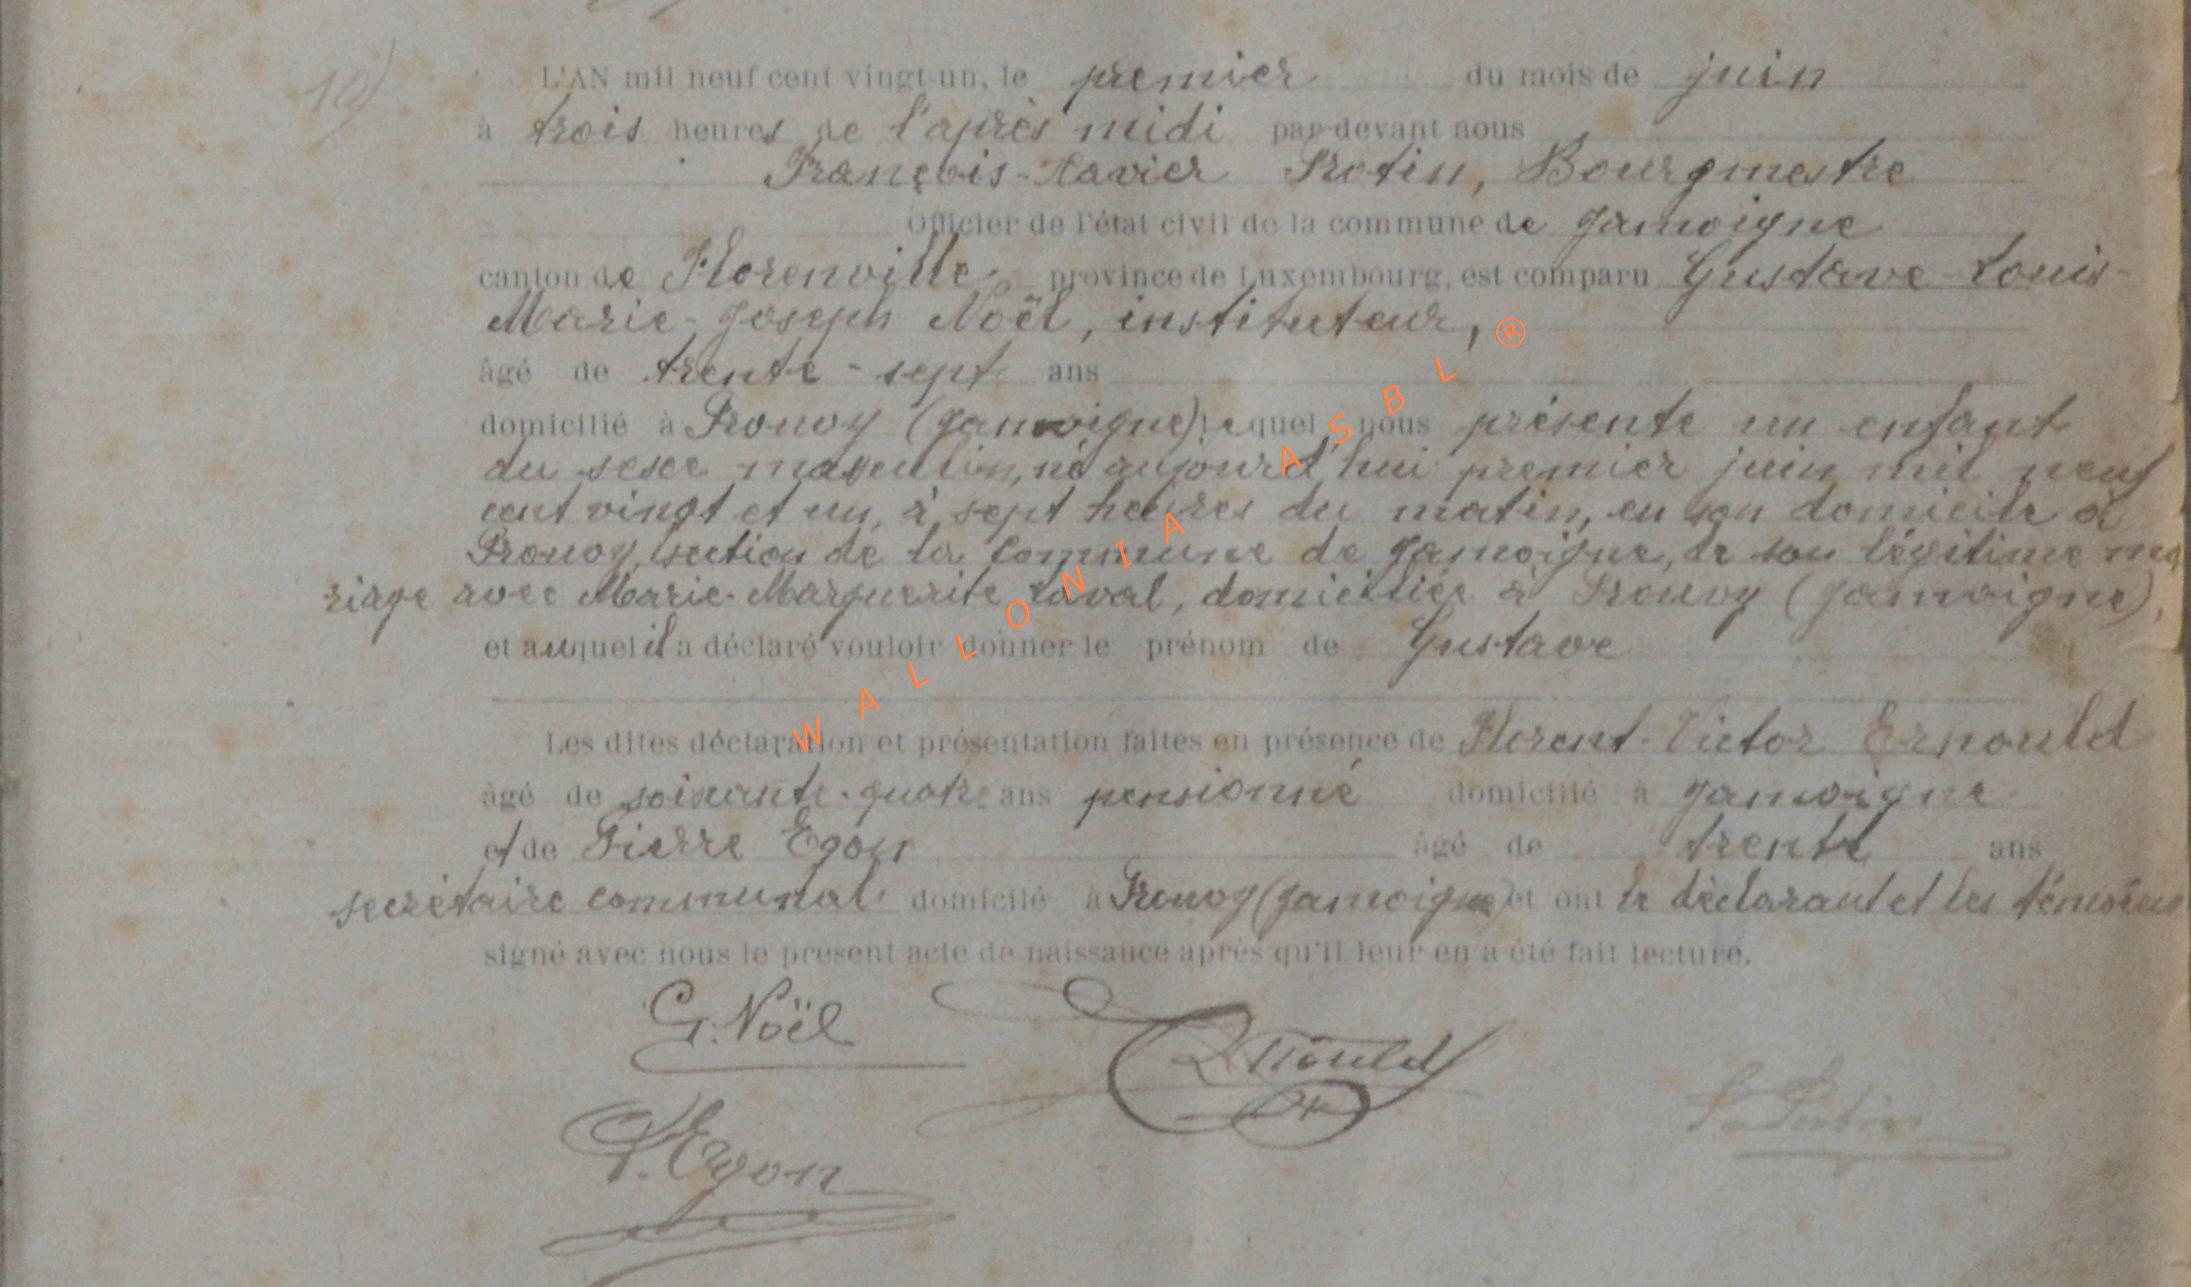 10)
L'AN mil neuf cent vingt-un, le premier du mois de juin
à trois heures de l'après midi par-devant nous
François-Xavier Protin, Bourgmestre
Officier de l'état civil de la commune de Jamoigne
canton de Florenville, province de Luxembourg, est comparu Gustave-Louis-
Marie-Joseph Noël, instituteur,
âgé de trente-sept ans
domicilié à Prouvy (Jamoigne) lequel nous présente un enfant
du sexe masculin, né aujourd'hui premier juin mil neuf
cent vingt et un, à sept heures du matin, en son domicile à
Prouvy, section de la commune de Jamoigne, de son légitime ma
riage avec Marie-Marguerite Laval, domiciliée à Prouvy (Jamoigne),
et auquel il a déclaré vouloir donner le prénom de Gustave
Les dites déclaration et présentation faites en présence de Florent-Victor Ernould
âgé de soixante-quatre ans pensionné domicilié à Jamoigne
et de Pierre Egon âgé de trente ans
secrétaire communal domicilié à Prouvy (Jamoigne) et ont le déclarant et les témoins
signé avec nous le présent acte de naissance après qu'il leur en a été fait lecture.
G. Noël
Ernould
P. Egon
WALLONIA ASBL ®